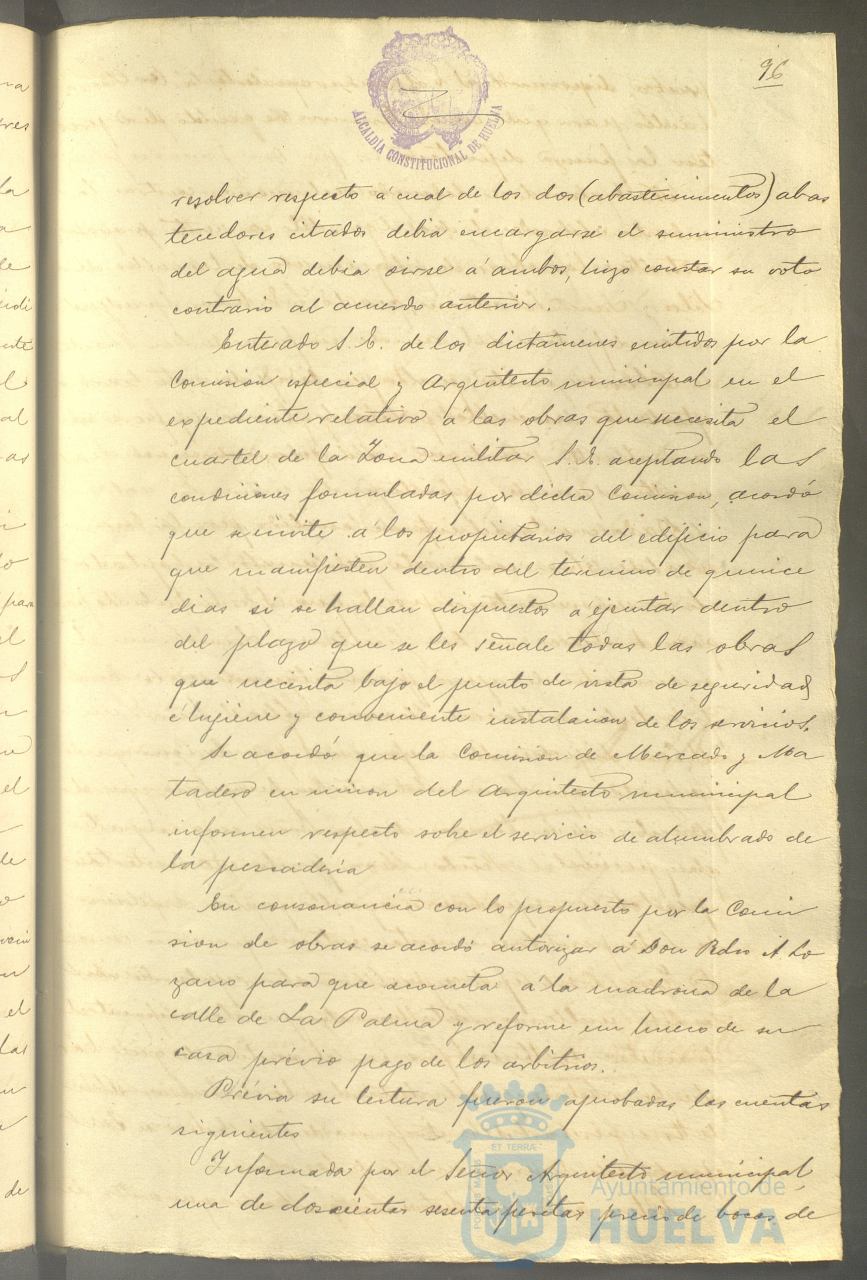 96
ALCALDÍA CONSTITUCIONAL DE HUELVA
resolver respecto á cual de los dos (abastecimientos) abas
tecedores citados debia encargarse el suministro
del agua debia oirse á ambos, hizo constar su voto
contrario al acuerdo anterior.
Enterado S. E. de los dictámenes emitidos por la
Comision especial y Arquitecto municipal en el
expediente relativo a las obras que necesita el
cuartel de la Zona militar S. E. aceptando las
condiciones formuladas por dicha Comision, acordó
que se invite á los propietarios del edificio para
que manifiesten dentro del término de quince
dias si se hallan dispuestos á ejecutar dentro
del plazo que se les señale todas las obras
que necesita bajo el punto de vista de seguridad
é higiene y conveniente instalacion de los servicios.
Se acordó que la Comision de Mercado y Ma
tadero en union del Arquitecto municipal
informen respecto sobre el servicio de alumbrado de
la pescadería
En consonancia con lo propuesto por la Comi
sion de obras se acordó autorizar á Don Pedro A Lo
zano para que acometa á la madrona de la
calle de La Palma y reforme un hueco de su
casa prévio pago de los arbitrios.
Prévia su lectura fueron aprobadas las cuentas
siguientes
Informada por el Señor Arquitecto municipal,
una de doscientas sesenta pesetas precio de bocas de
Ayuntamiento de
HUELVA
ET TERRÆ